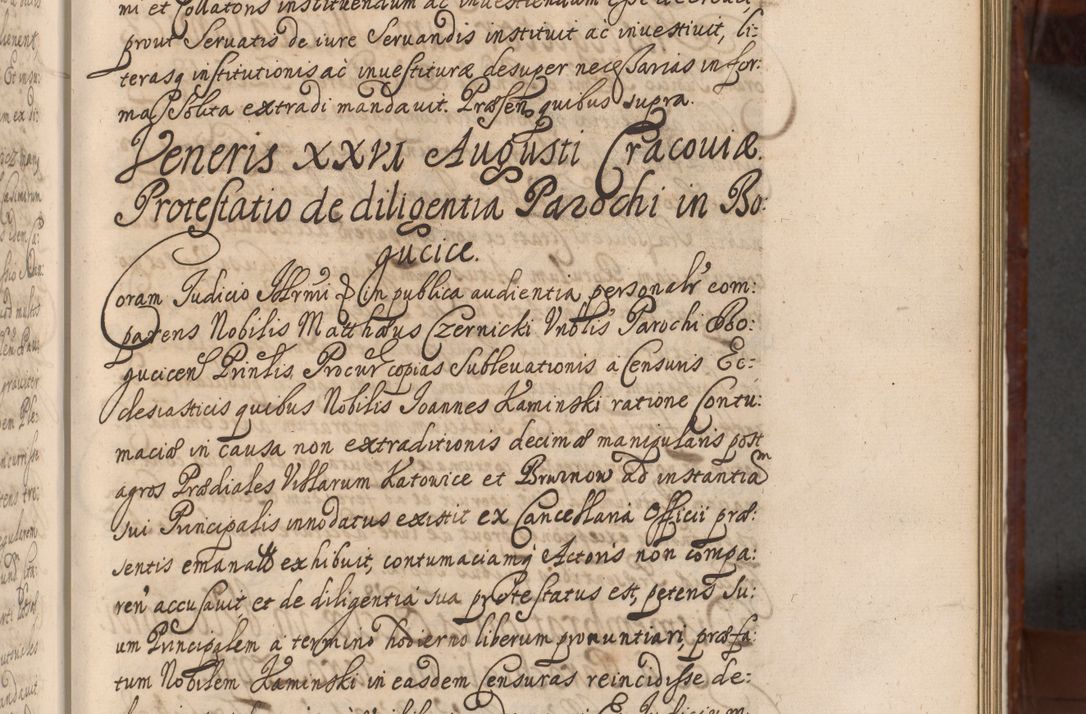 mi et Collatoris instituendum ac investiendum esse decrevit,
prout servatis de iure servandis instituit ac investivit, li:
terasq institutionis ac investituræ desuper necessarias in for:
ma solita extradi mandavit. Præsen quibus supra.
Veneris XXVI Augusti Cracoviæ.
Protestatio de diligentia Parochi in Bo:
gucice.
Coram Judicio Illrmi & in publica audientia personalr com:
parens Nobilis Matthæus Czernicki Vnblis Parochi Bo:
gucicen Prinlis Procur copias sublevationis a Censuris Ec:
clesiasticis quibus Nobilis Joannes Kaminski ratione Contu:
maciæ in causa non extraditionis decimæ manipularis post
agros Prædiales Villarum Katowice et Brwinow ad instantiam
sui Principalis innodatus existit ex Cancellaria Officii præ:
sentis emanatt exhibuit, contumaciamq Actoris non compa:
ren accusavit et de diligentia sua protestatus est, petens su:
um Principalem a termino hodierno liberum pronuntiari, præfa:
tum Nobilem Kaminski in easdem Censuras reincidisse de: